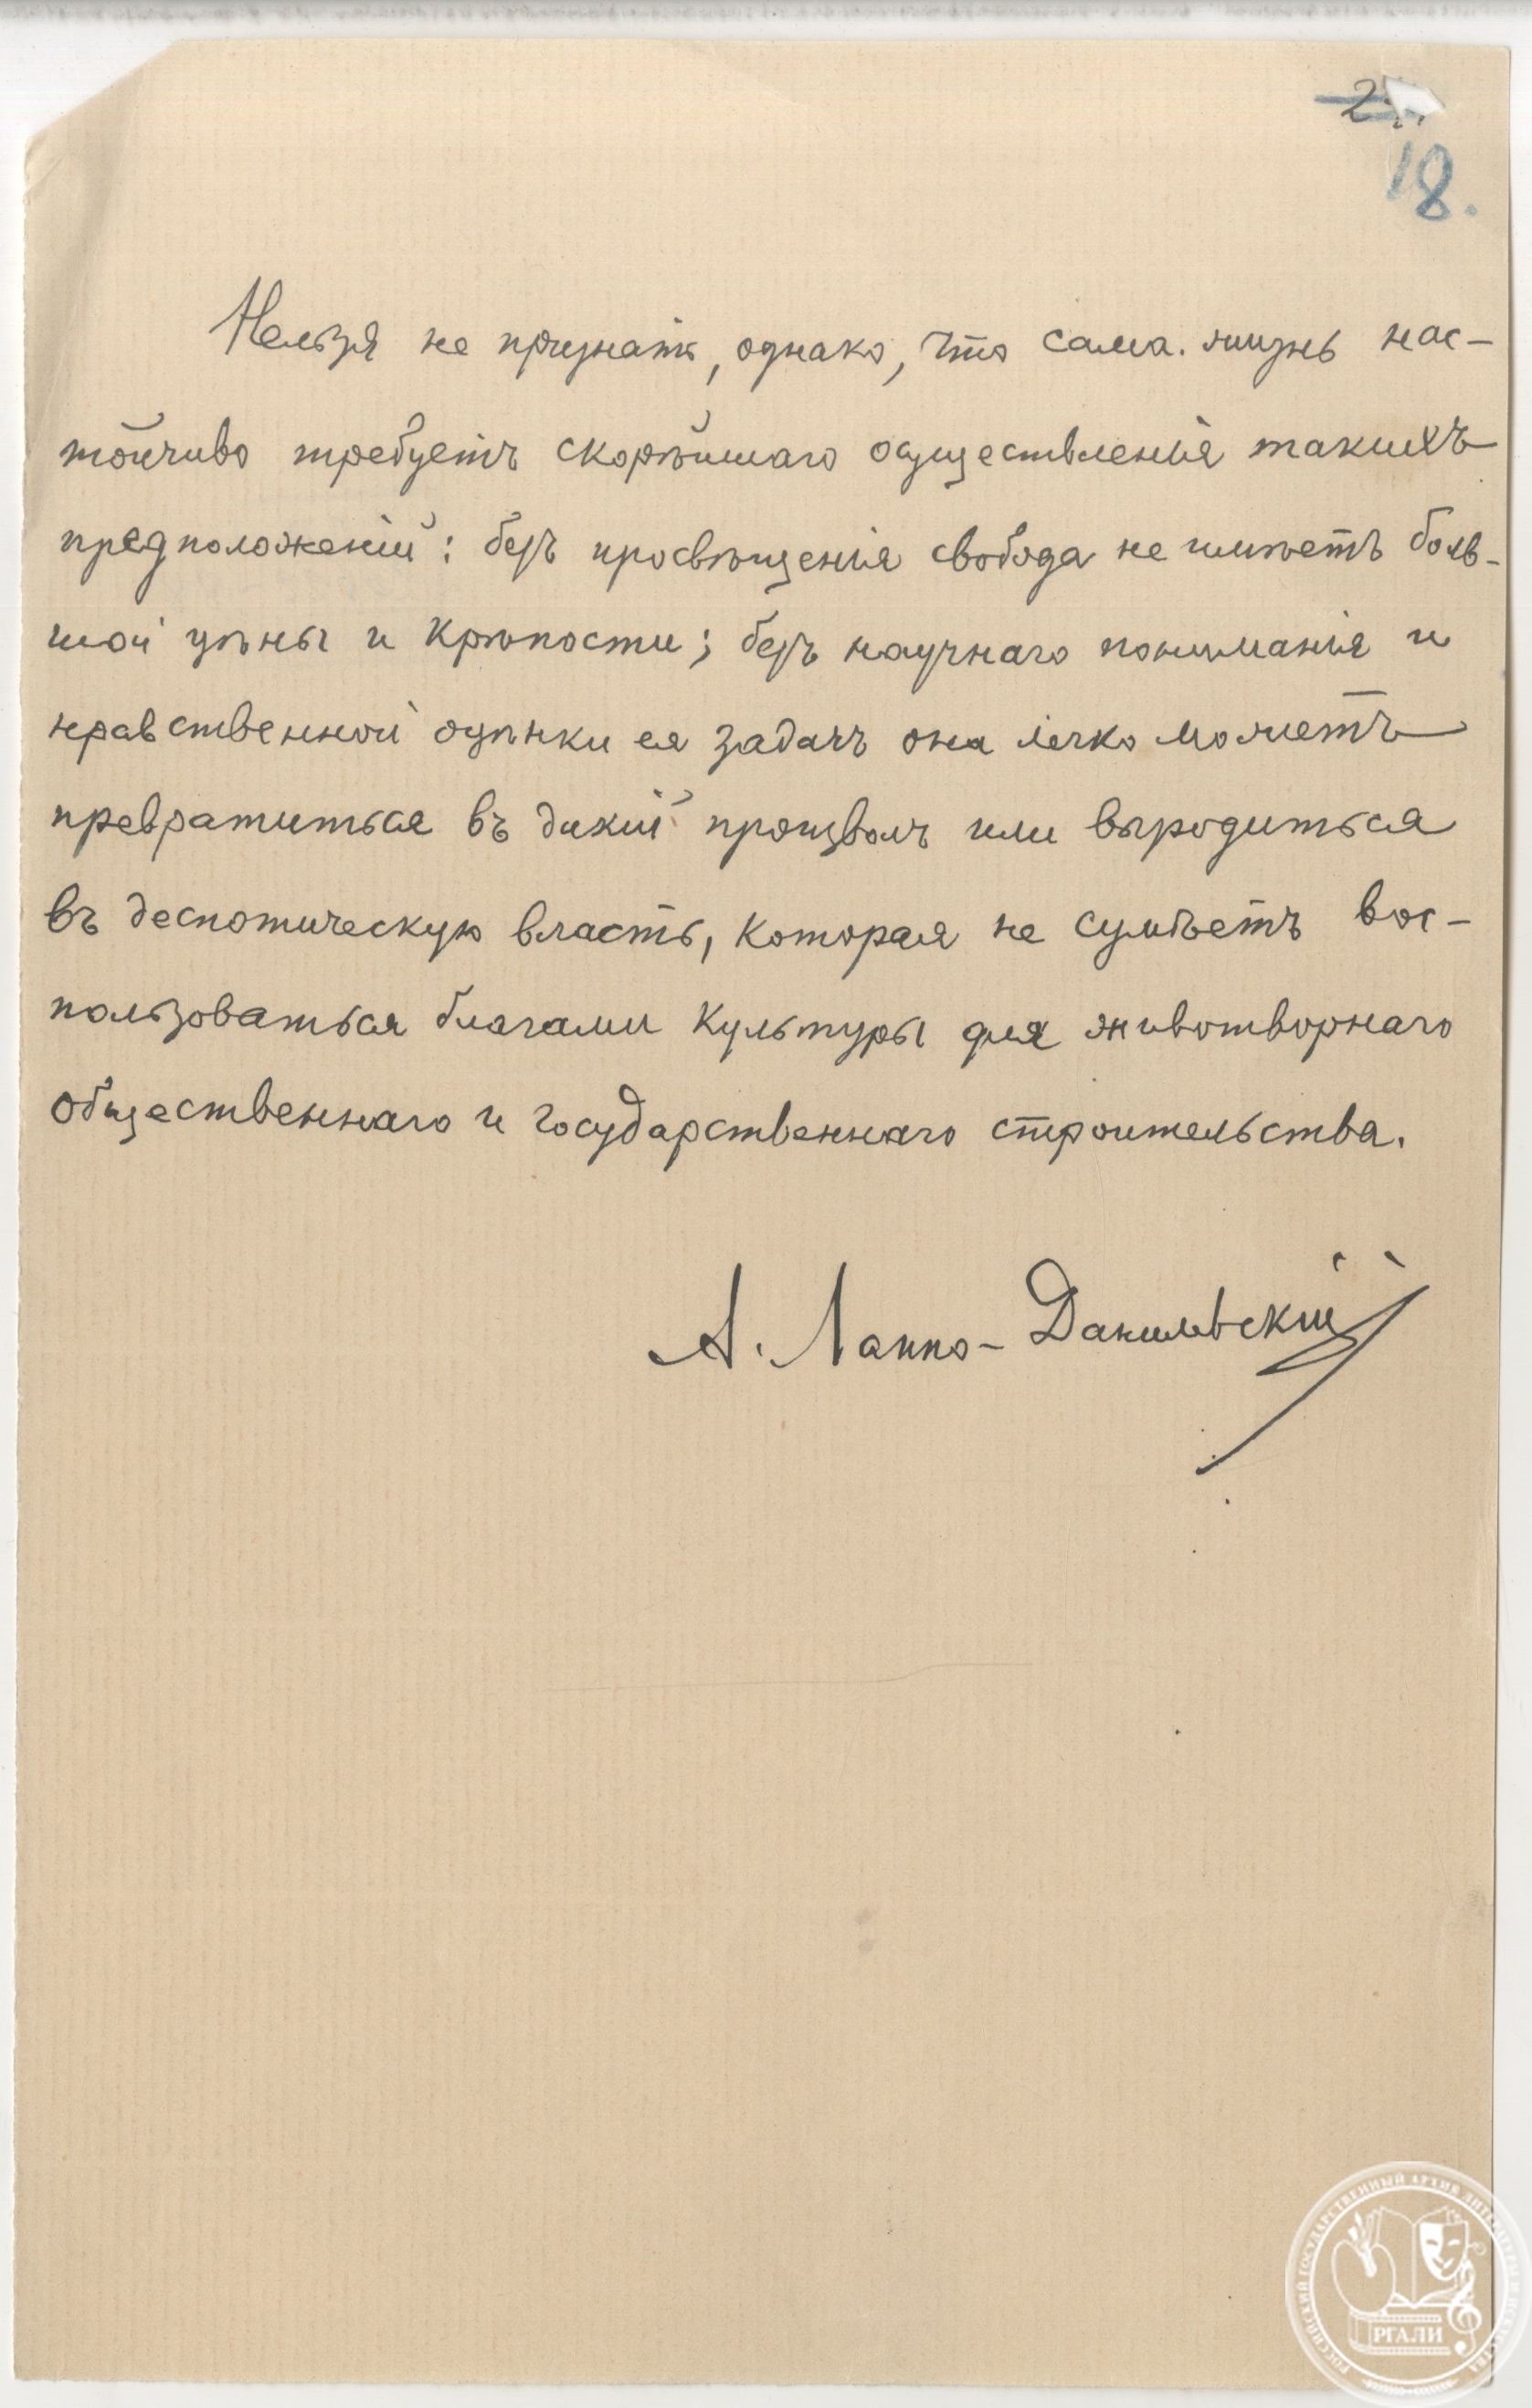 18.
Нельзя не признать, однако, что сама жизнь нас-
тойчиво требуетъ скорѣйшаго осуществленія такихъ
предположеній: безъ просвѣщенія свобода не имѣетъ боль-
шой цѣны и крѣпости; безъ научнаго пониманія и
нравственной оцѣнки ея задачъ она легко можетъ
превратиться въ дикій произволъ или выродиться
въ деспотическую власть, которая не сумѣетъ вос-
пользоваться благами культуры для животворнаго
общественнаго и государственнаго строительства.
А. Лаппо-Данилевскій
РОССИЙСКИЙ ГОСУДАРСТВЕННЫЙ АРХИВ ЛИТЕРАТУРЫ И ИСКУССТВА
РГАЛИ